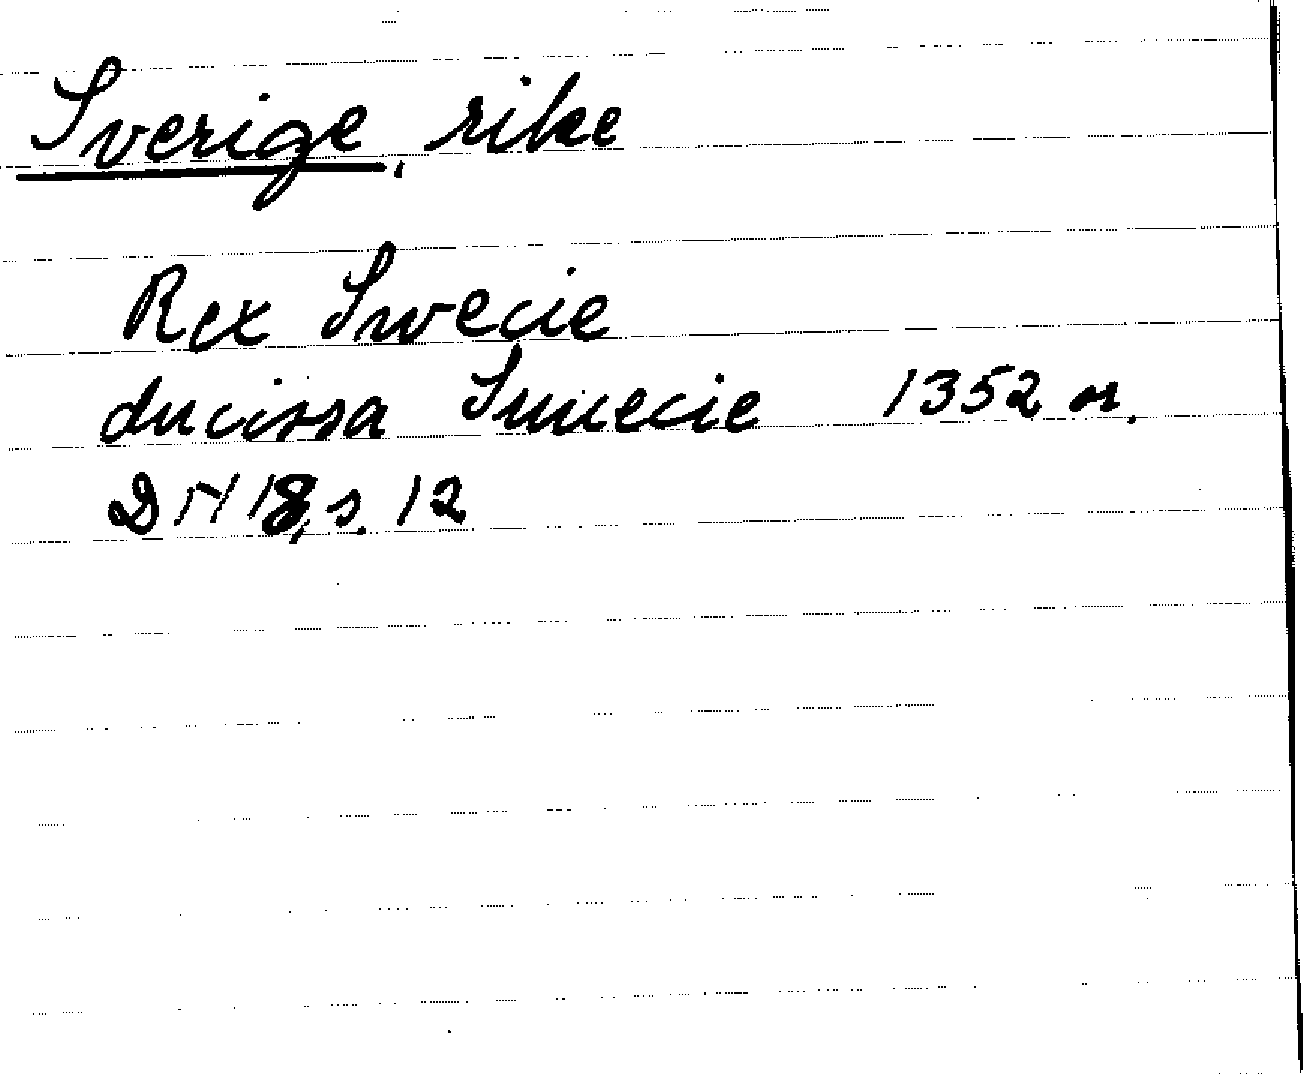 Sverige, rike
Rex Swecie
ducissa Suuecie 1352 or.
DN 18, s. 12